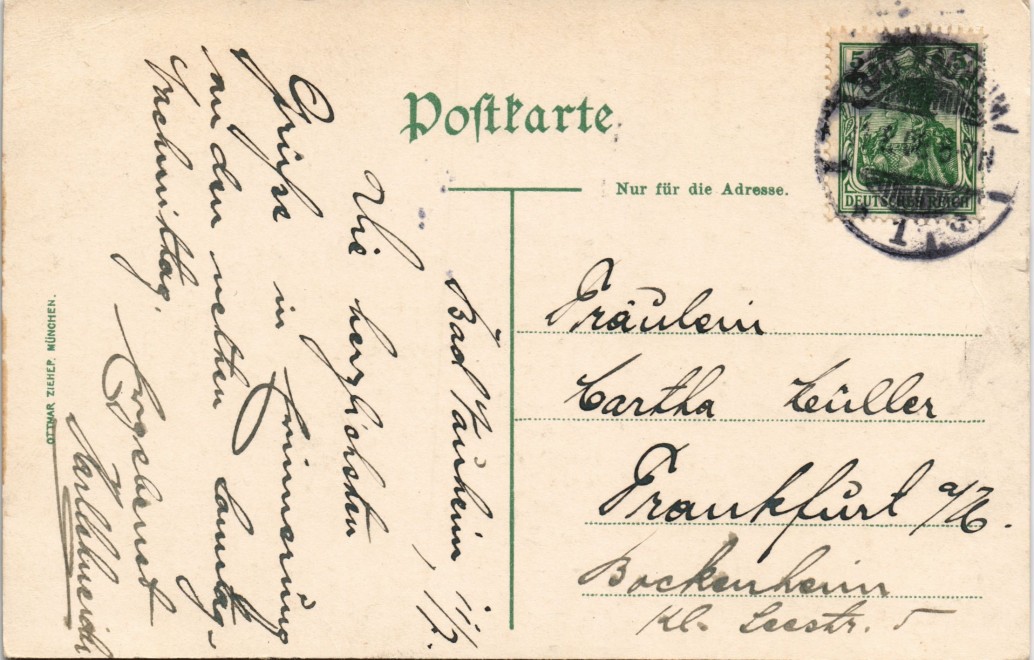 Postkarte
Nur für die Adresse.
5 5
DEUTSCHES REICH
Bad Nauheim,
Die herzlichsten
Grüße in Erinnerung
an den netten Sonntag-
Nachmittag.
Ergebenst
Fräulein
Müller
Frankfurt a/M.
Bockenheim
Kl. Seestr. 5
OTTMAR ZIEHER, MÜNCHEN.